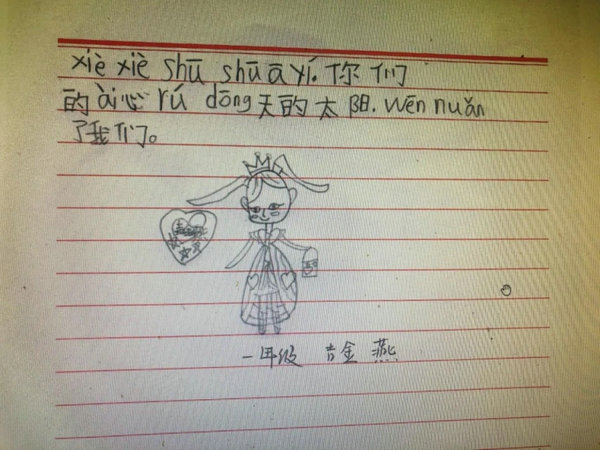 xiè xiè shū shū ā yí. 你们
的ài心 rú dōng天的太阳. wēn nuǎn
了我们。
一年级 吉金燕